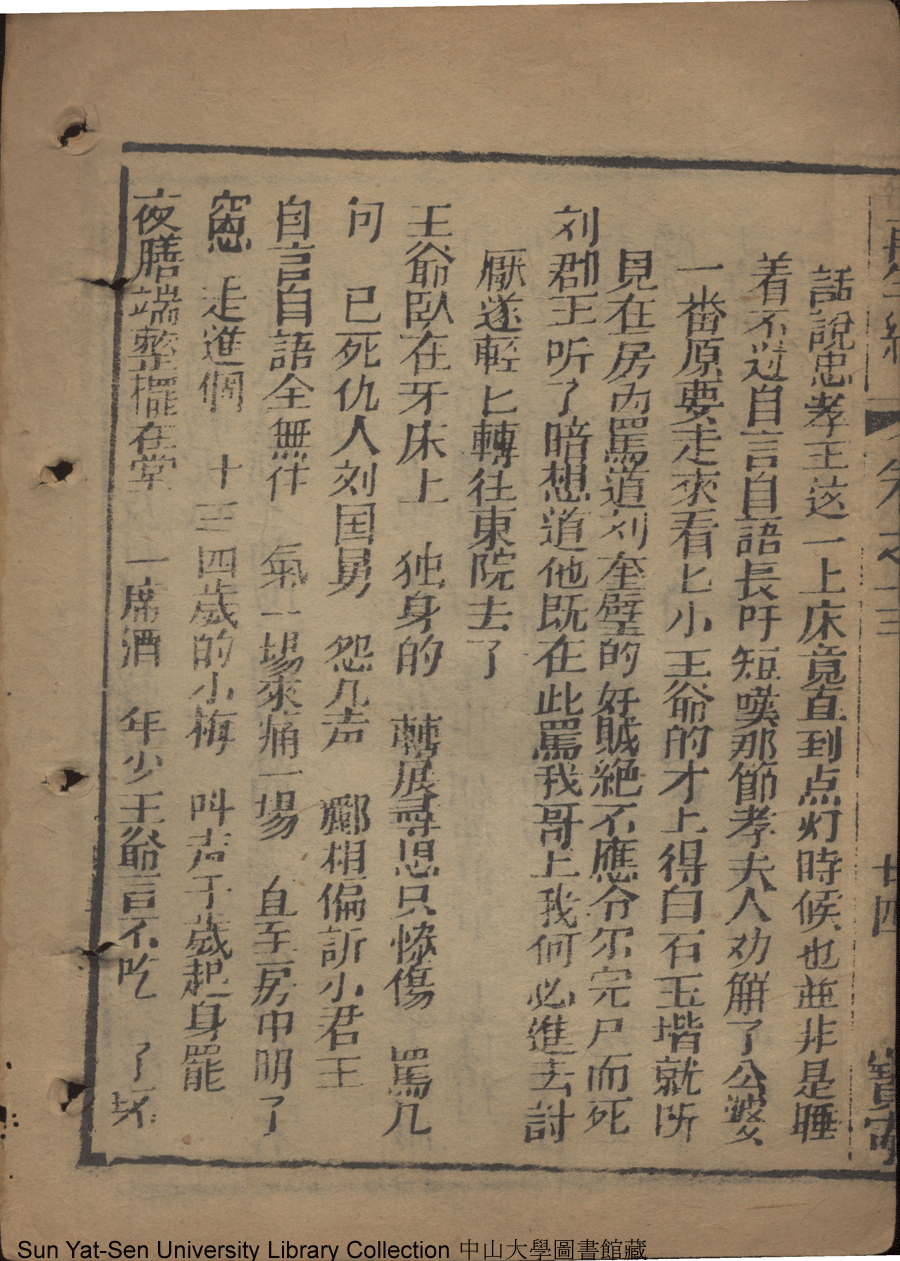 再生緣 卷之十三 廿四 寶寧
話說忠孝王这一上床竟直到点灯時候也並非是睡
着不过自言自語長吁短嘆那節孝夫人劝解了公婆
一番原要走來看匕小王爺的才上得白石玉堦就听
見在房内罵道刘奎璧的奸賊絕不應分尔完尸而死
刘郡王听了暗想道他既在此罵我哥上我何必進去討
厭遂輕匕轉往東院去了
王爺臥在牙床上 独身的 轉展尋思只慘傷 罵几
句 已死仇人刘国舅 怨几声 酈相偏訴小君王
自言自語全無伴 氣一場來痛一場 直至房中明了
窓 走進個 十三四歲的小梅 叫声千歲起身罷
夜膳端整擺在堂 一席酒 年少王爺言不吃 了床
Sun Yat-Sen University Library Collection 中山大學圖書館藏